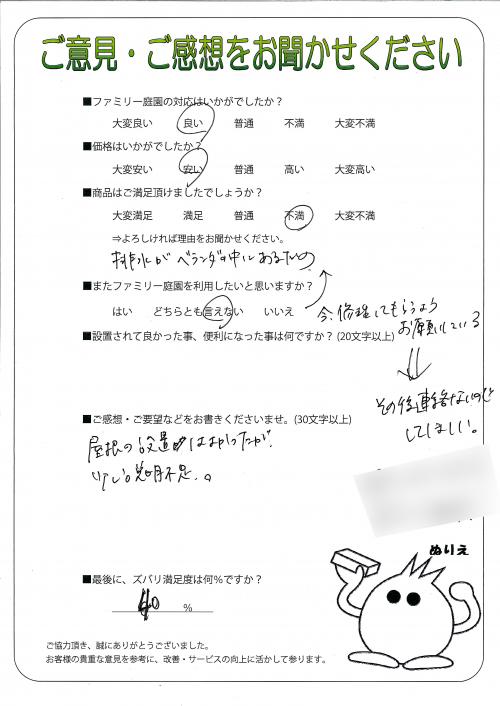 ご意見・ご感想をお聞かせください
■ファミリー庭園の対応はいかがでしたか？
大変良い 良い 普通 不満 大変不満
■価格はいかがでしたか？
大変安い 安い 普通 高い 大変高い
■商品はご満足頂けましたでしょうか？
大変満足 満足 普通 不満 大変不満
⇒よろしければ理由をお聞かせください。
排水がベランダの中にあるため
■またファミリー庭園を利用したいと思いますか？
はい どちらとも言えない いいえ
今、修理してもらうよう
お願いしている
■設置されて良かった事、便利になった事は何ですか？(20文字以上)
その後連絡ないので
してほしい。
■ご感想・ご要望などをお書きくださいませ。(30文字以上)
屋根の設置は良かったが、
説明不足。
ぬりえ
■最後に、ズバリ満足度は何％ですか？
40 ％
ご協力頂き、誠にありがとうございました。
お客様の貴重な意見を参考に、改善・サービスの向上に活かして参ります。